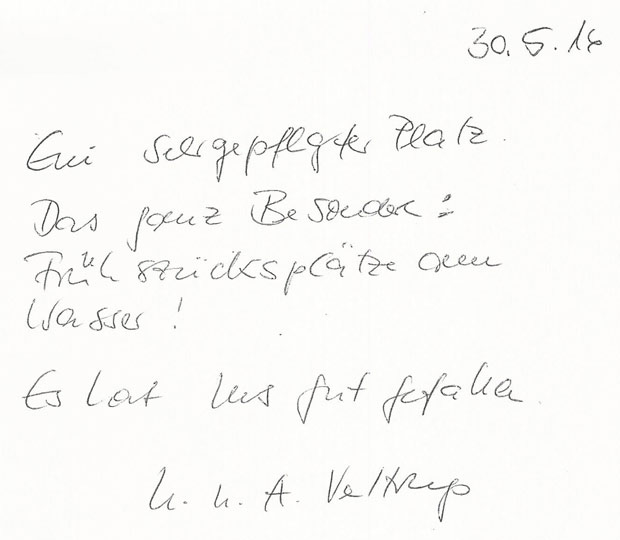 30.5.16
Ein sehr gepflegter Platz.
Das ganz Besondere:
Frühstücksplätze am
Wasser!
Es hat uns gut gefallen.
u. A. Veltrup